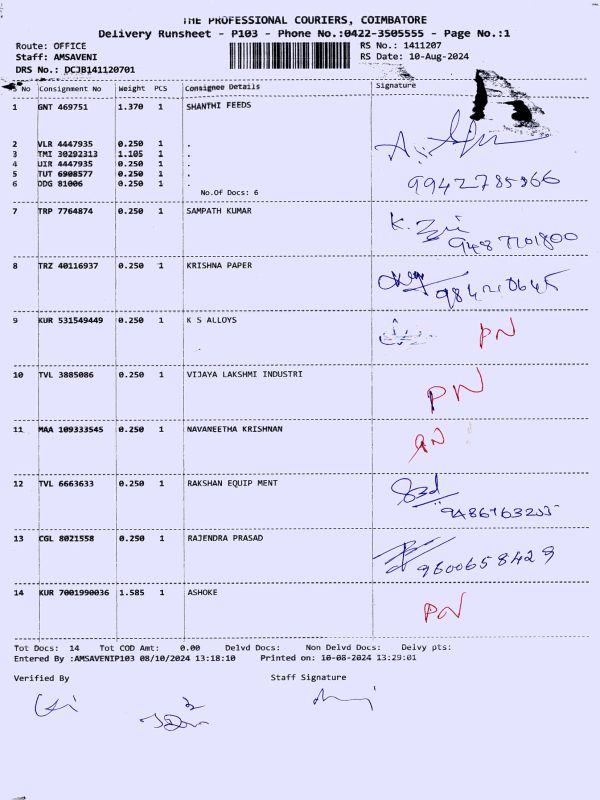 THE PROFESSIONAL COURIERS, COIMBATORE
Delivery Runsheet - P103 - Phone No.:0422-3505555 - Page No.:1
Route: OFFICE RS No.: 1411207
Staff: AMSAVENI RS Date: 10-Aug-2024
DRS No.: DCJB141120701
S No Consignment No Weight PCS Consignee Details Signature
1 GNT 469751 1.370 1 SHANTHI FEEDS
2 VLR 4447935 0.250 1 .
3 TMI 30292313 1.105 1 .
4 UIR 4447935 0.250 1 .
5 TUT 6908577 0.250 1 .
6 DDG 81006 0.250 1 .
No.Of Docs: 6
9942785366
7 TRP 7764874 0.250 1 SAMPATH KUMAR
9487701800
8 TRZ 40116937 0.250 1 KRISHNA PAPER
9842110645
9 KUR 531549449 0.250 1 K S ALLOYS PN
10 TVL 3885086 0.250 1 VIJAYA LAKSHMI INDUSTRI
PN
11 MAA 109333545 0.250 1 NAVANEETHA KRISHNAN
12 TVL 6663633 0.250 1 RAKSHAN EQUIP MENT
13 CGL 8021558 0.250 1 RAJENDRA PRASAD
9600658429
14 KUR 7001990036 1.585 1 ASHOKE
PN
Tot Docs: 14 Tot COD Amt: 0.00 Delvd Docs: Non Delvd Docs: Delvy pts:
Entered By :AMSAVENIP103 08/10/2024 13:18:10 Printed on: 10-08-2024 13:29:01
Verified By Staff Signature